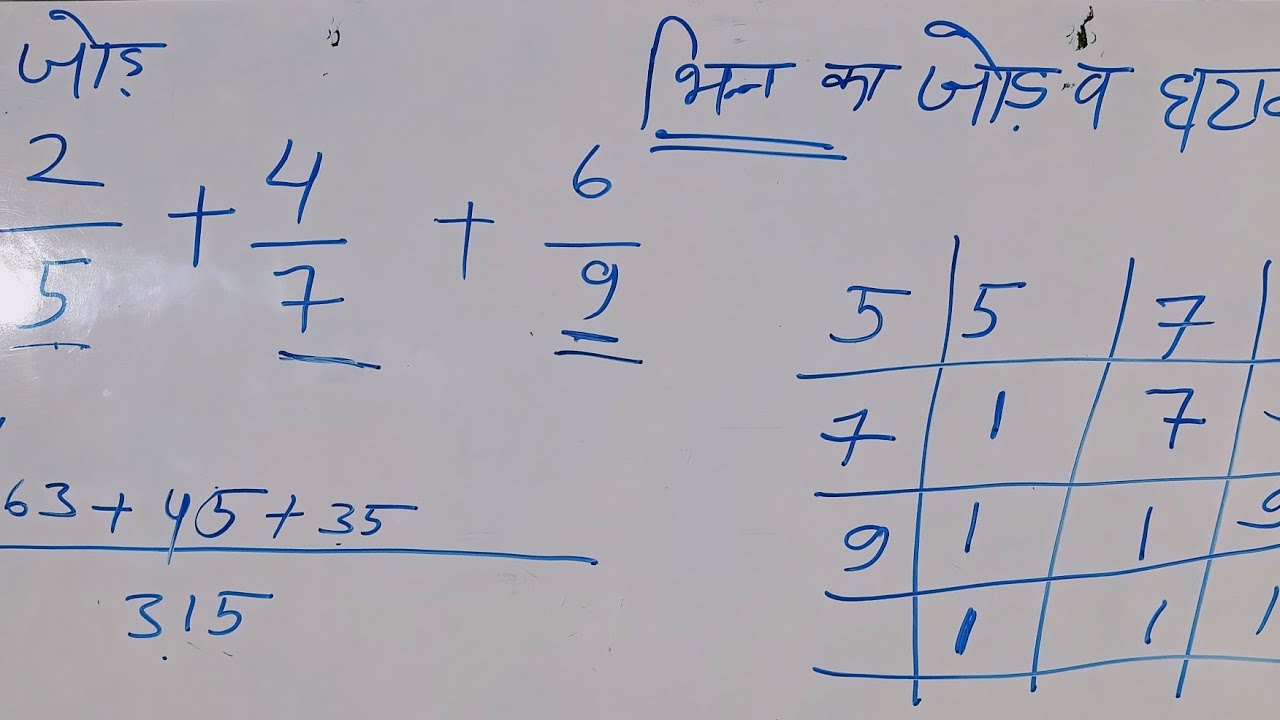 जोड़
भिन्न का जोड़ व घटाव
2/5 + 4/7 + 6/9
63 + 45 + 35
315
5 | 5 | 7 |
7 | 1 | 7
9 | 1 | 1 | 9
1 | 1 | 1